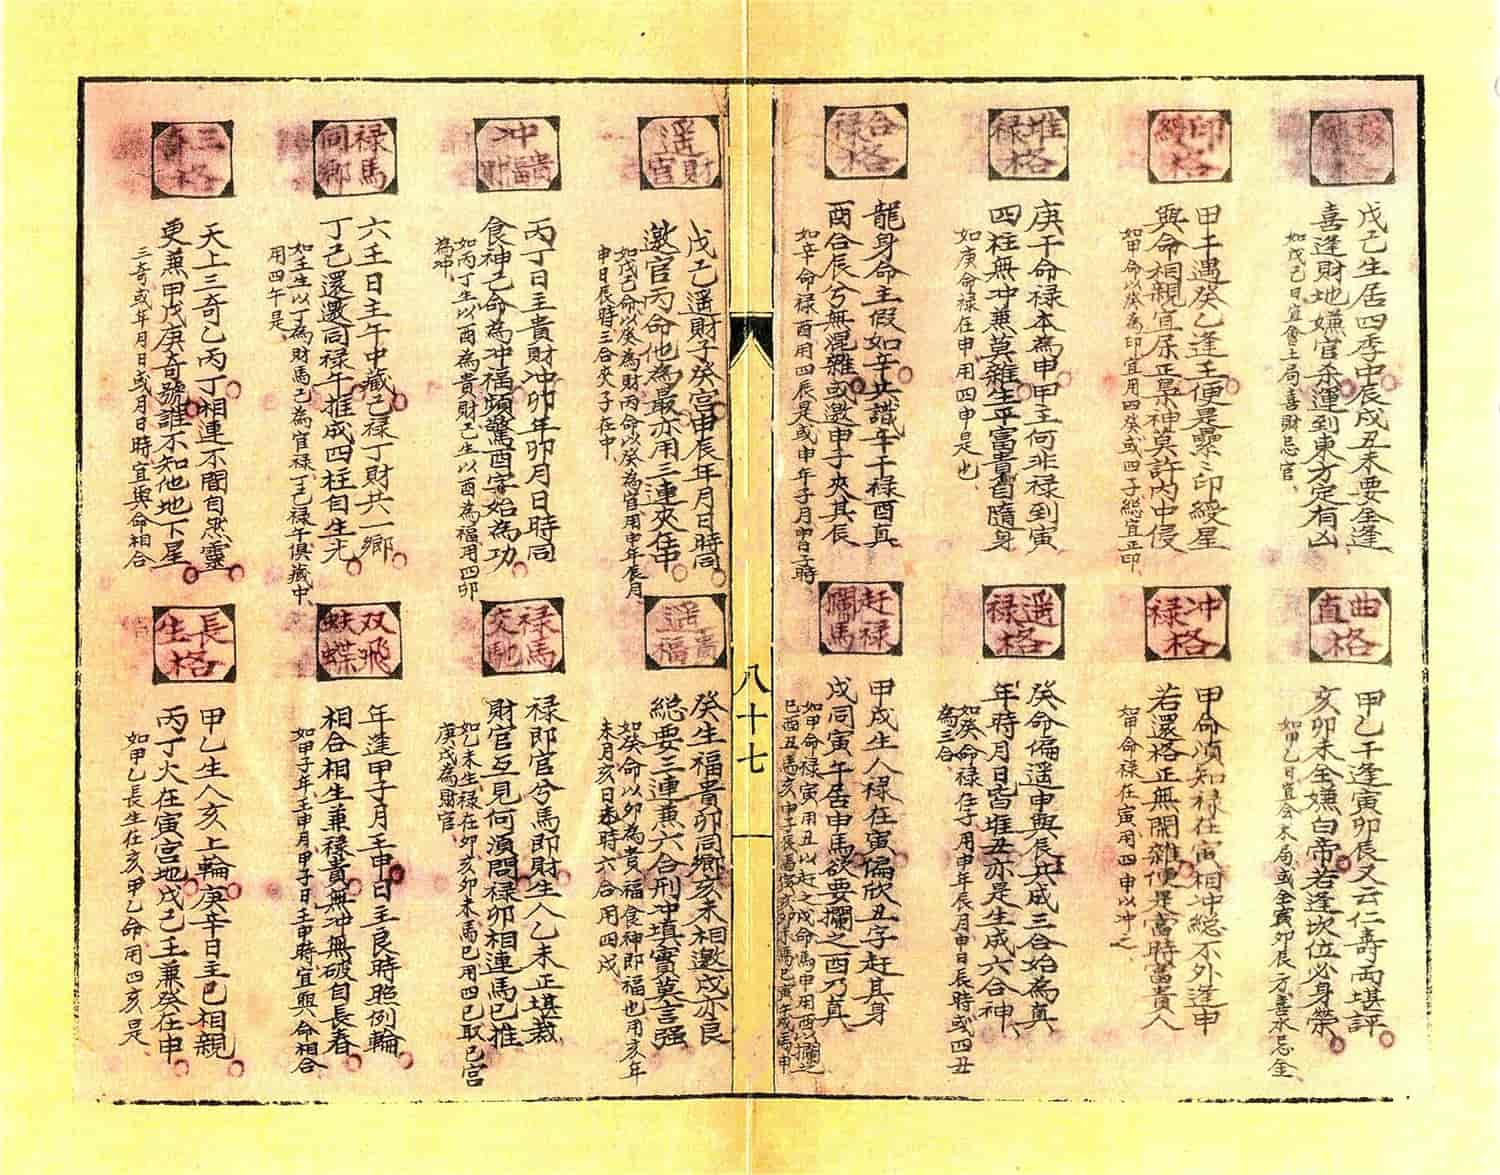 稼穡格
戊己生居四季中辰戌丑未要全逢
喜逢財地嫌官杀運到東方定有凶
如戊己日宜會土局喜財忌官
印綬格
甲壬遇癸乙逢壬便是纍纍印綬星
與命相親宜屎正梟神莫許內中侵
如甲命以癸為印宜用四癸或四子總宜正印
堆禄格
庚干命禄本為申甲主何非禄到寅
四柱無冲兼莫雜生平富貴自隨身
如庚命禄在申用四申是也
合禄格
龍身命主假如辛共識辛干禄酉真
酉合辰兮無混雜或邀申子夾其辰
如辛命禄酉用四辰是或申年子月申日子時
曲直格
甲乙干逢寅卯辰又云仁壽两堪評
亥卯未全嫌白帝若逢坎位必身榮
如甲乙日宜会木局或全寅卯辰方喜水忌金
冲禄格
甲命須知禄在寅相冲總不外逢申
若還格正無閑雜便是當時富貴人
如甲命禄在寅用四申以冲之
遥禄格
癸命偏遥申與辰共成三合始為真
年時月日皆堆丑亦是生成六合神
如癸命禄在子用申年辰月申日辰時或四丑
為三合
赶禄攔馬
甲戌生人禄在寅偏欣丑字赶其身
戌同寅午居申馬欲要攔之酉乃真
如甲命禄寅用丑以赶之戌命馬申用酉以攔之
八十七
遥財官
戊己遥財子癸宫申辰年月日時同
邀官丙命他為最亦用三連夾在中
如戊己命以癸為財丙命以癸為官用申年辰月
申日辰時三合夾子在中
冲貴福財
丙丁日主貴財冲卯年卯月日時同
食神己命為冲福頻驚酉字始為功
如丙丁生以酉為貴財己生以酉為福用四卯
為冲
禄馬同鄉
六壬日主午中藏己禄丁財共一鄉
丁己還邀同禄午推成四柱自生光
如壬生以丁為財馬己為官禄丁己禄午俱藏中
用四午是
三奇格
天上三奇乙丙丁相連不間自然靈
更兼甲戊庚奇號誰不知他地下星
三奇或年月日或月日時宜與命相合
遥貴福
癸生福貴卯同鄉亥未相邀戌亦良
総要三連兼六合刑冲填實莫言强
如癸命以卯為貴福食神即福也用亥年
未月亥日未時六合用四戌
禄馬交馳
禄即官兮馬即財生人乙未正堪裁
財官互見何須問禄卯相連馬巳推
如乙未生禄在卯亥卯未馬巳用四巳取巳宫
庚戊為財官
双飛蝴蝶
年逢甲子月壬申日主良時照例輪
相合相生兼禄貴無冲無破自長春
如甲子年壬申月甲子日壬申時宜與命相合
長生格
甲乙生人亥上輪庚辛日主巳相親
丙丁火在寅宫地戊己壬兼癸在申
如甲乙長生在亥甲乙命用四亥是